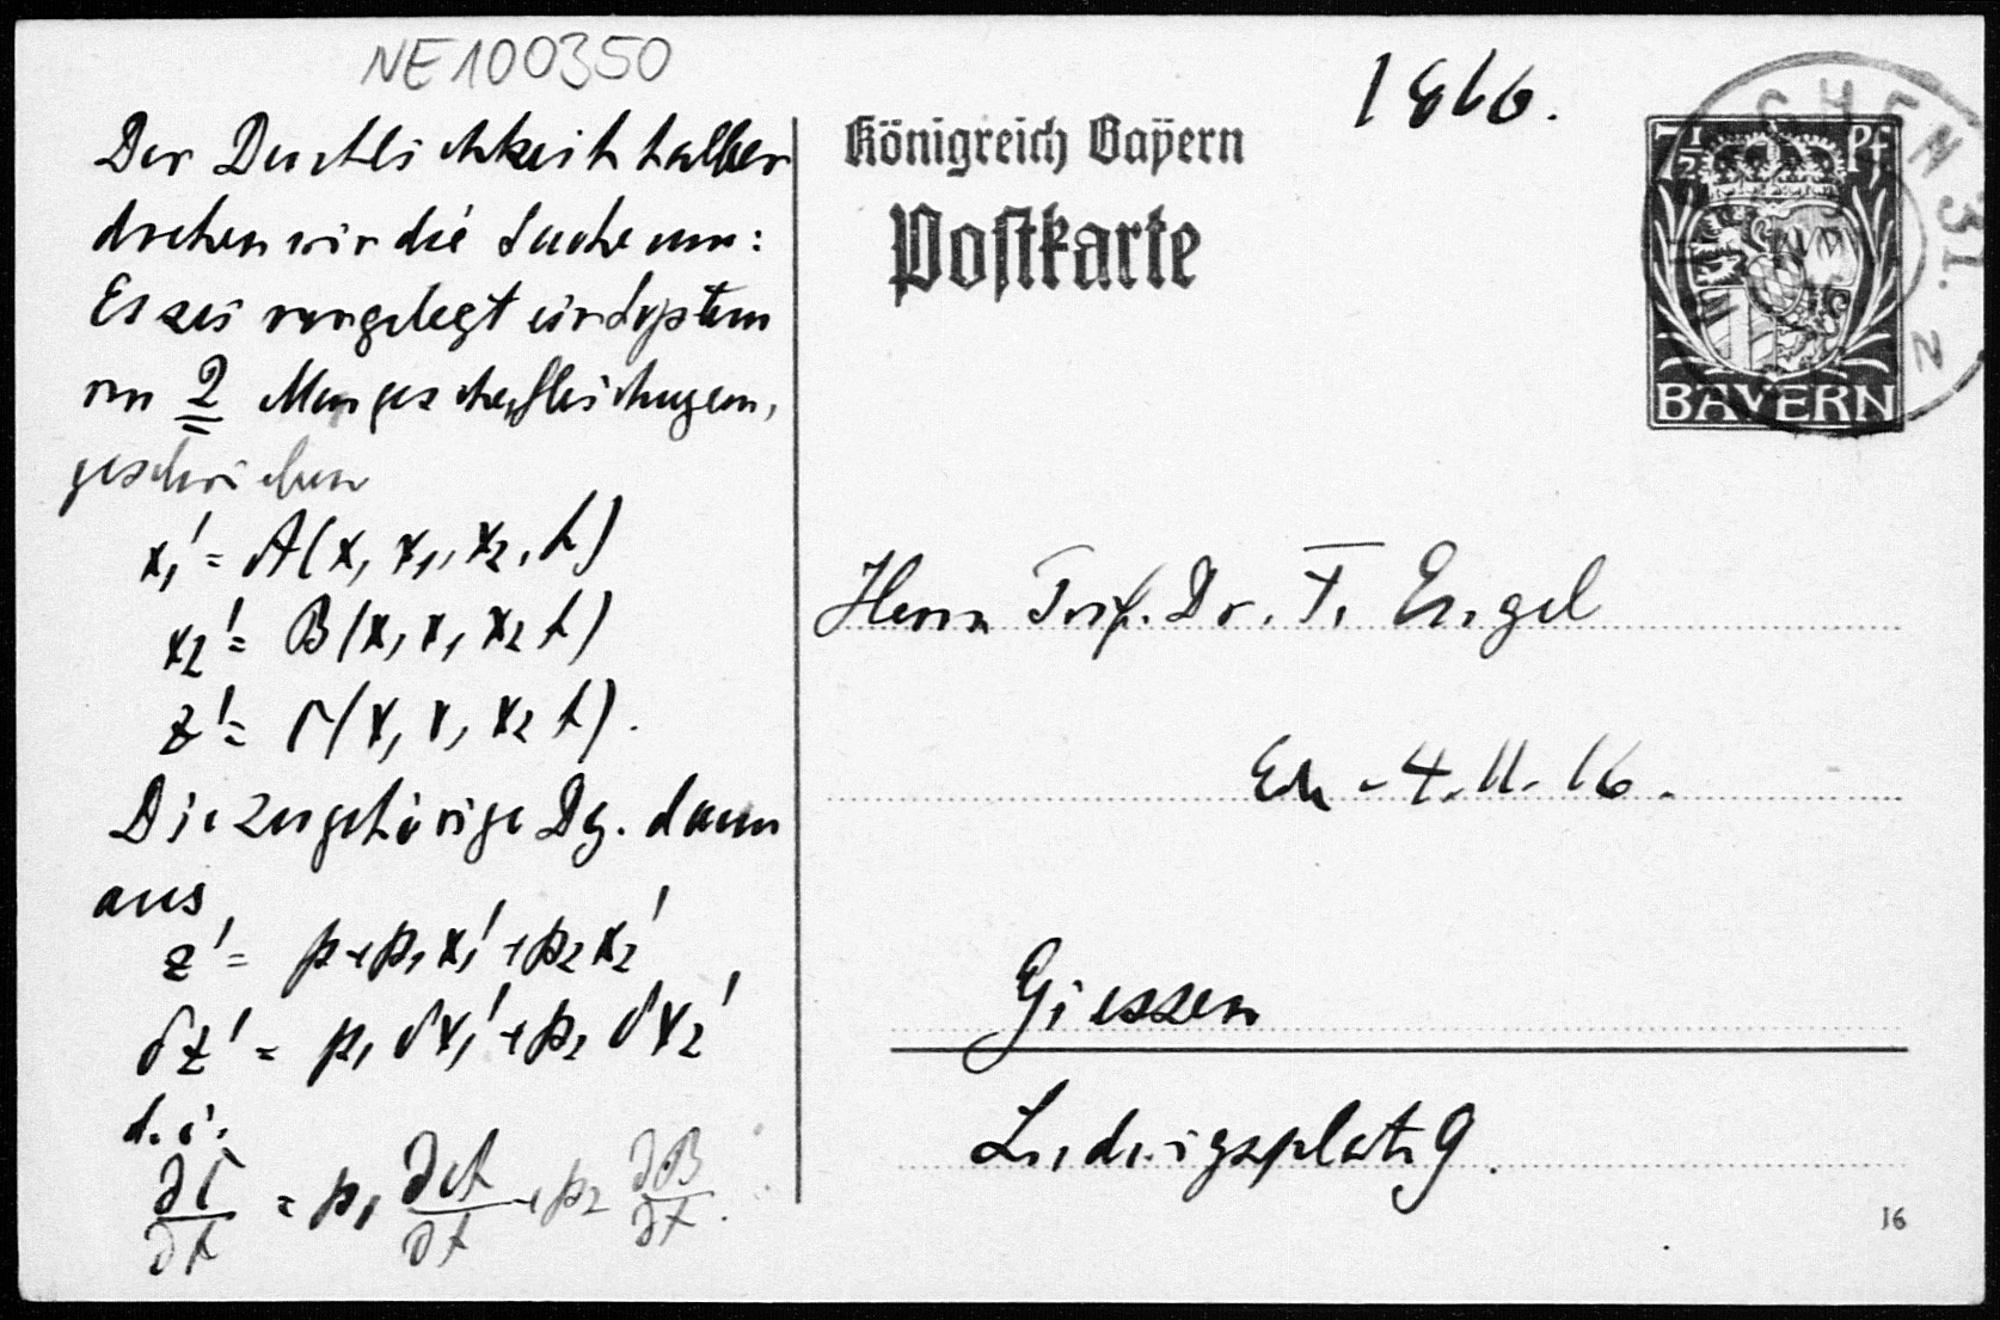 NE100350
Der Deutlichkeit halber
drehen wir die Sache um:
Es sei vorgelegt ein System
von 2 Mongeschen Gleichungen,
geschrieben
x₁' = A(x, x₁, x₂, t)
x₂' = B(x, x₁ x₂ t)
z' = Γ(x, x₁ x₂ t).
Die zugehörige Dg. dann
aus
z' = p+p₁x₁'+p₂x₂'
δz' = p₁ δx₁'+p₂ δx₂'
d. i.
∂Γ/∂t = p₁ ∂A/∂t + p₂ ∂B/∂t.
1866.
Königreich Bayern
Postkarte
7½ Pf
BAYERN
CHEN 31.
2
Herrn Prof. Dr. F. Engel
4. 11. 16.
Giessen
Ludwigsplatz 9.
16